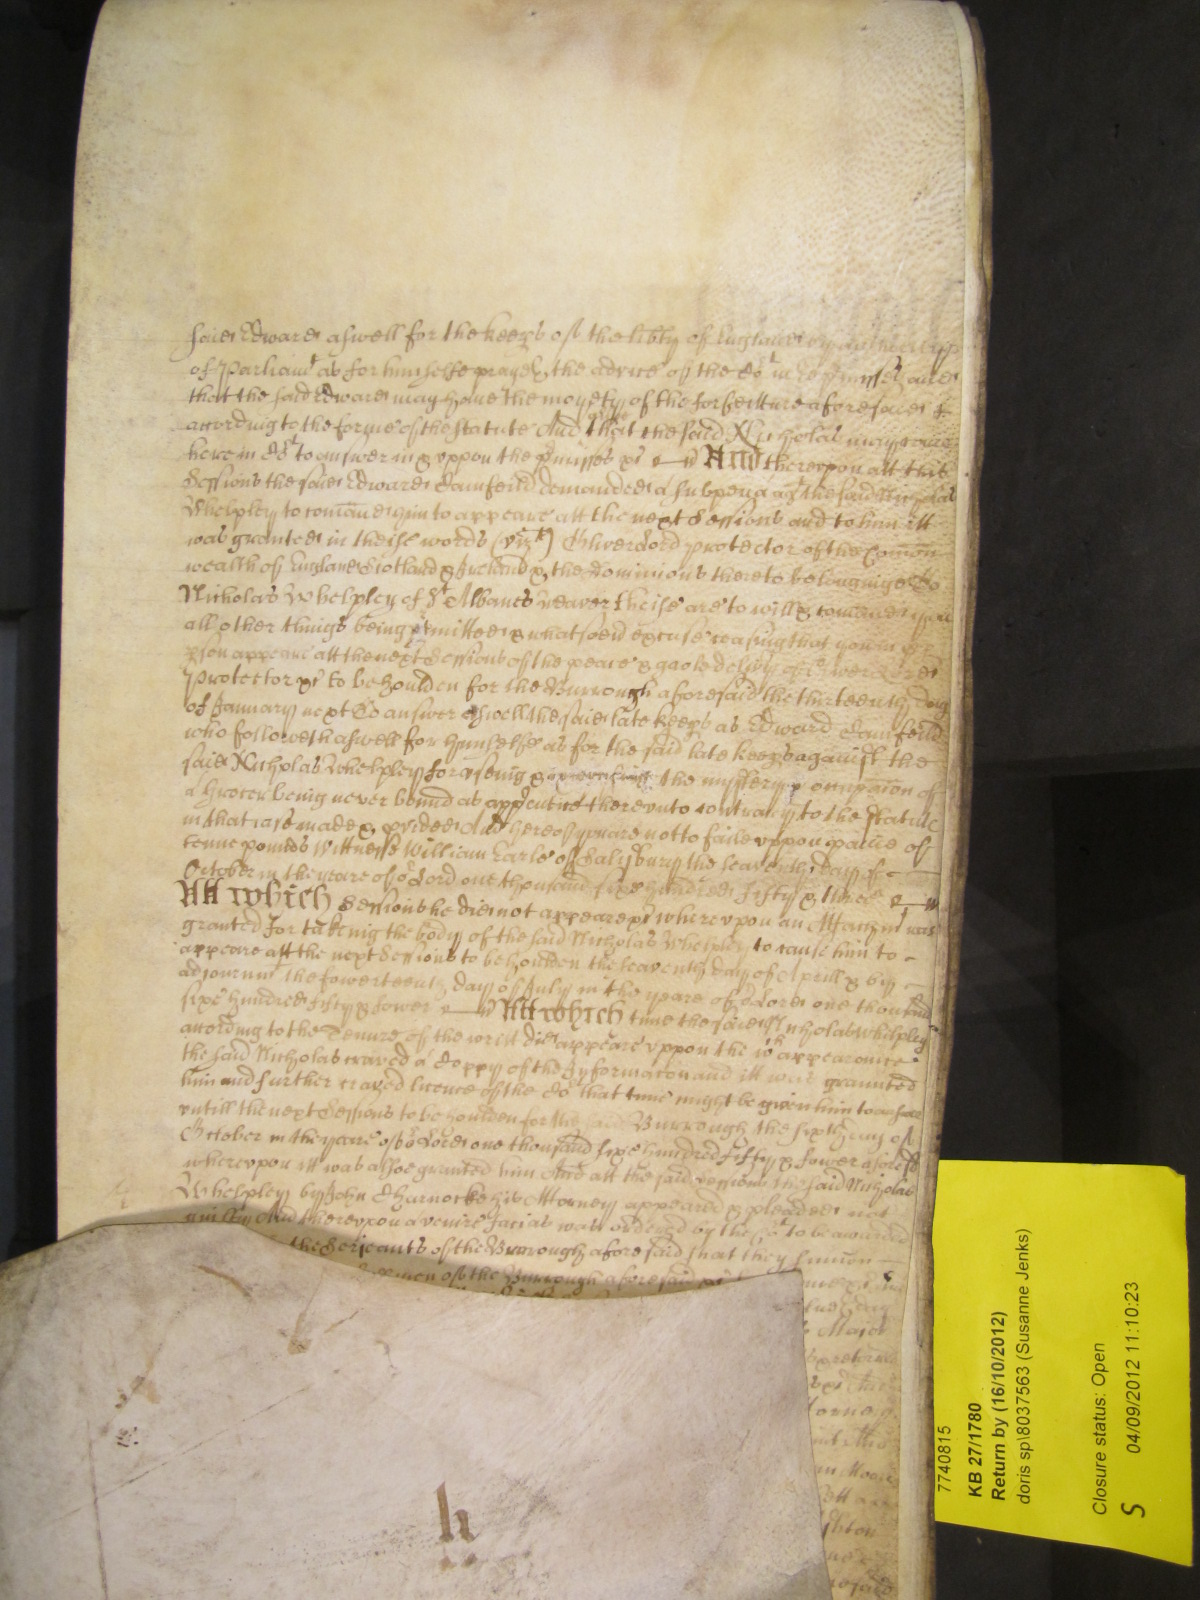 said Edward aswell for the keeps of the libty of England by authority
of Parliamt as for himselfe prayeth the advice of the Cort in the pmisses and
that the said Edward may have the moyety of the forfeiture aforesaid
according to the forme of the Statute And that the said Nicholas may come
here in Cort to answer in & uppon the pmisses &c And thereupon att that
Sessions the said Edward Camfeild demanded a Subpena agt the said Nicholas
Whelpley to comaund him to appeare att the next Sessions and to him itt
was granted in theise words (vizt) Oliver Lord Protector of the Comon
wealth of England Scotland & Ireland & the dominions thereto belonginge To
Nicholas Whelpley of St Albanes Weaver theise are to will & comaund you
all other things being pmitted & whatsoev excuse ceasing that you in yor
pson appeare att the next Sessions of the peace & gaole delivy of the Lord
Protector &c to be houlden for the Burrough aforesaid the thirteenth day
of January next To answer aswell the said late keeps as Edward Camfeild
who followeth aswell for himselfe as for the said late keeps against the
said Nicholas Whelpley for useing & exerciseing the mistery & occupacon of
a being never bound as apprentice thereunto contrary to the Statute
in that case made & pvided And hereof you are not to faile uppon paine of
tenne pounds Wittnesse William Earle of Salisbury the seaventh day of
October in the yeare of or Lord one thousand six hundred fifty & three
Att which Sessions he did not appeare &c whereupon an Attachmt was
granted for takeing the body of the said Nicholas Whelpley to cause him to
appeare att the next Sessions to be houlden the seaventh day of Aprill & by
adjournmt the fowerteenth day of July in the yeare of or Lord one thousand
sixe hundred fifty & fower Att which time the said Nicholas Whelpley
according to the Tenure of the writt did appeare uppon the wch appearance
the said Nicholas craved a Coppy of the Informacon and itt was graunted
him and further craved licence of the Cort that time might be given him to answer
untill the next Sessions to be houlden for the said Burrough the sixth day of
October in the yeare of or Lord one thousand sixe hundred fifty & fower aforesd
whereupon itt was alsoe granted him And att the said Sessions the said Nicholas
Whelpley by John Charnocke his Attorney appeared & pleaded not
guilty And thereupon a venire facias was ordered by the Cort to be awarded
the Serjeants of the Burrough aforesaid that they sumon
of the Burrough aforesaid &c
Maior
retorne
h
7740815
KB 27/1780
Return by (16/10/2012)
doris sp\8037563 (Susanne Jenks)
Closure status: Open
04/09/2012 11:10:23
S